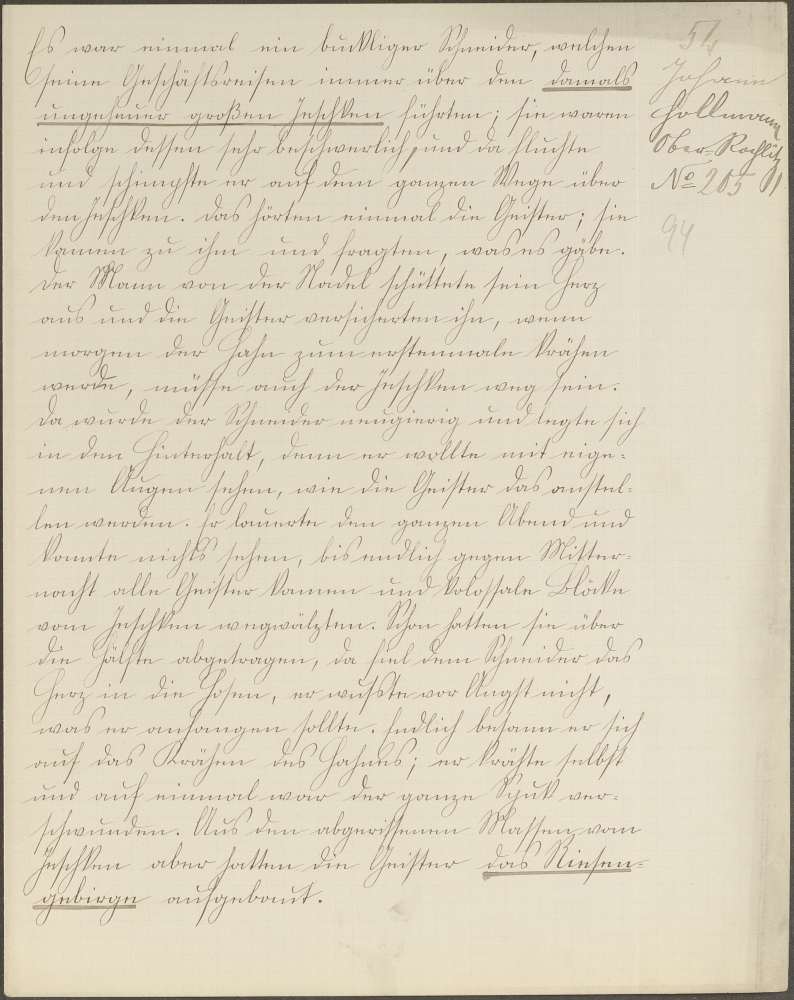 Es war einmal ein buckliger Schneider, welchen
seine Geschäftsreisen immer über den damals
ungeheuer großen Jeschken führten; sie waren
infolge dessen sehr beschwerlich, und da fluchte
und schimpfte er auf dem ganzen Wege über
den Jeschken. Das hörten einmal die Geister; sie
kamen zu ihm und fragten, was es gäbe.
Der Mann von der Nadel schüttete sein Herz
aus und die Geister versicherten ihn, wenn
morgen der Hahn zum erstenmale krähen
werde, müsse auch der Jeschken weg sein.
Da wurde der Schneider neugierig und legte sich
in den Hinterhalt, denn er wollte mit eige=
nen Augen sehen, wie die Geister das anstel=
len werden. Er lauerte den ganzen Abend und
konnte nichts sehen, bis endlich gegen Mitter=
nacht alle Geister kamen und kolossale Blöcke
vom Jeschken wegwälzten. Schon hatten sie über
die Hälfte abgetragen, da fiel dem Schneider das
Herz in die Hosen, er wußte vor Angst nicht,
was er anfangen sollte. Endlich besann er sich
auf das Krähen des Hahnes; er krähte selbst
und auf einmal war der ganze Spuk ver=
schwunden. Aus den abgerissenen Massen vom
Jeschken aber hatten die Geister das Riesen=
gebirge aufgebaut.
51
Johann
Hollmann
Ober-Rochlitz
No 205
94